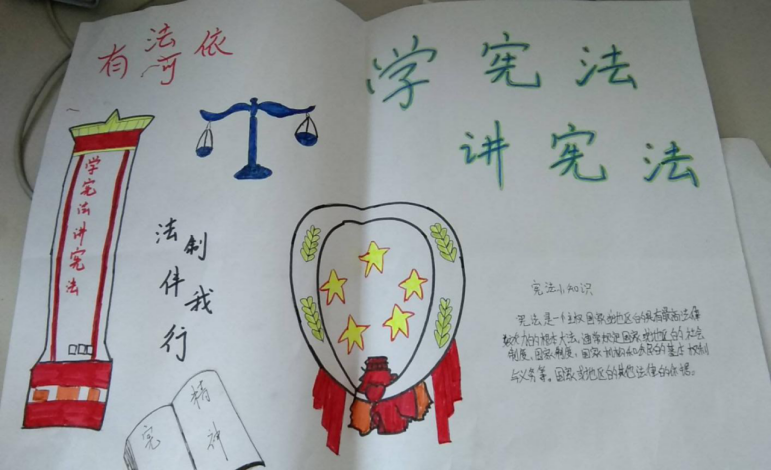 有法可依
学宪法
讲宪法
学宪法讲宪法
法制伴我行
宪法小知识
宪法是一个主权国家或地区的具有最高法律
效力的根本大法。通常规定国家或地区的社会
制度、国家制度、国家机构和公民的基本权利
与义务等。国家或地区的其他法律的依据。
宪
精神